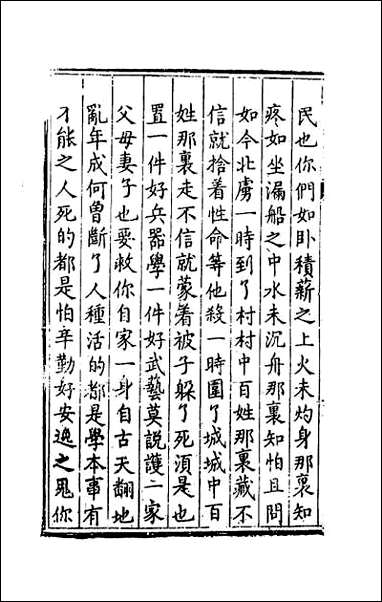 民也你們如卧積薪之上火未灼身那裏知
疼如坐漏船之中水未沉舟那裏知怕且問
如今北虜一時到了村村中百姓那裏藏不
信就捨着性命等他殺一時圍了城城中百
姓那裏走不信就蒙着被子躲了死湏是也
置一件好兵器學一件好武藝莫說護一家
父母妻子也要救你自家一身自古天翻地
亂年成何曾斷了人種活的都是學本事有
才能之人死的都是怕辛勤好安逸之鬼你